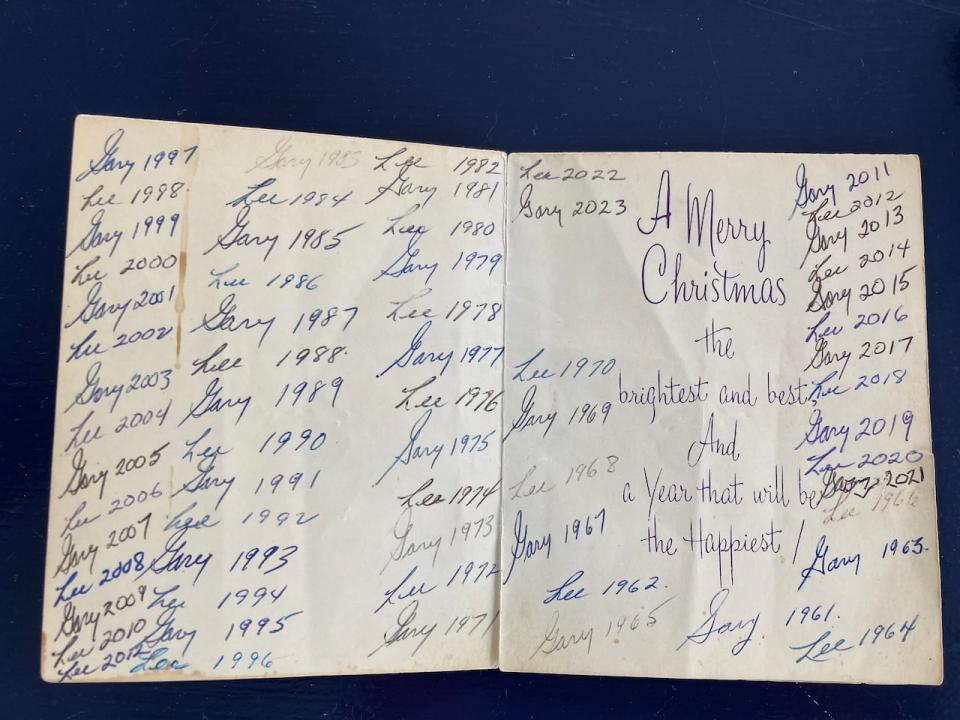 Gary 1997
Lee 1998
Gary 1999
Lee 2000
Gary 2001
Lee 2002
Gary 2003
Lee 2004
Gary 2005
Lee 2006
Gary 2007
Lee 2008
Gary 2009
Lee 2010
Lee 2012
Gary 1983
Lee 1984
Gary 1985
Lee 1986
Gary 1987
Lee 1988
Gary 1989
Lee 1990
Gary 1991
Lee 1992
Gary 1993
Lee 1994
Gary 1995
Lee 1996
Lee 1982
Gary 1981
Lee 1980
Gary 1979
Lee 1978
Gary 1977
Lee 1976
Gary 1975
Lee 1974
Gary 1973
Lee 1972
Gary 1971
Lee 2022
Gary 2023
Lee 1970
Gary 1969
Lee 1968
Gary 1967
Lee 1962
Gary 1965
A Merry
Christmas
the
brightest and best,
And
a Year that will be
the Happiest!
Gary 1961.
Gary 2011
Lee 2012
Gary 2013
Lee 2014
Gary 2015
Lee 2016
Gary 2017
Lee 2018
Gary 2019
Lee 2020
Gary 2021
Lee 1966
Gary 1963.
Lee 1964